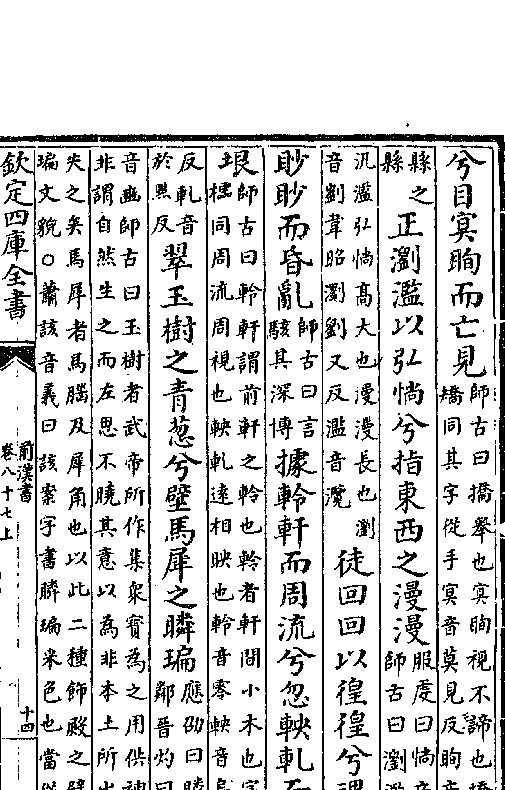 兮目冥眴而亡見師古曰撟舉也冥眴視不諦也撟
矯同其字從手冥音莫見反眴音
縣之
縣
正瀏濫以弘惝兮指東西之漫漫服虔曰惝音
師古曰瀏濫
汎濫弘惝高大也漫漫長也瀏
音劉韋昭瀏劉又反濫音灠
徒回回以徨徨兮
眇眇而昏亂師古曰言
駭其深博
據軨軒而周流兮忽軮軋而
垠師古曰軨軒謂前軒之軨也軨者軒間小木也字
櫺同周流周視也軮軋遠相映也軨音零軮音烏
反軋音
於黠反
翠玉樹之青蔥兮璧馬犀之瞵㻞應劭曰瞵
鄰晉灼曰
音豳師古曰玉樹者武帝所作集衆寳為之用供神
非謂自然生之而左思不曉其意以為非本土所出
失之矣馬犀者馬腦及犀角也以此二種飾殿之壁
㻞文貌○蕭該音義曰該案字書瞵㻞米色也當以
欽定四庫全書
前漢書
卷八十七上
十四